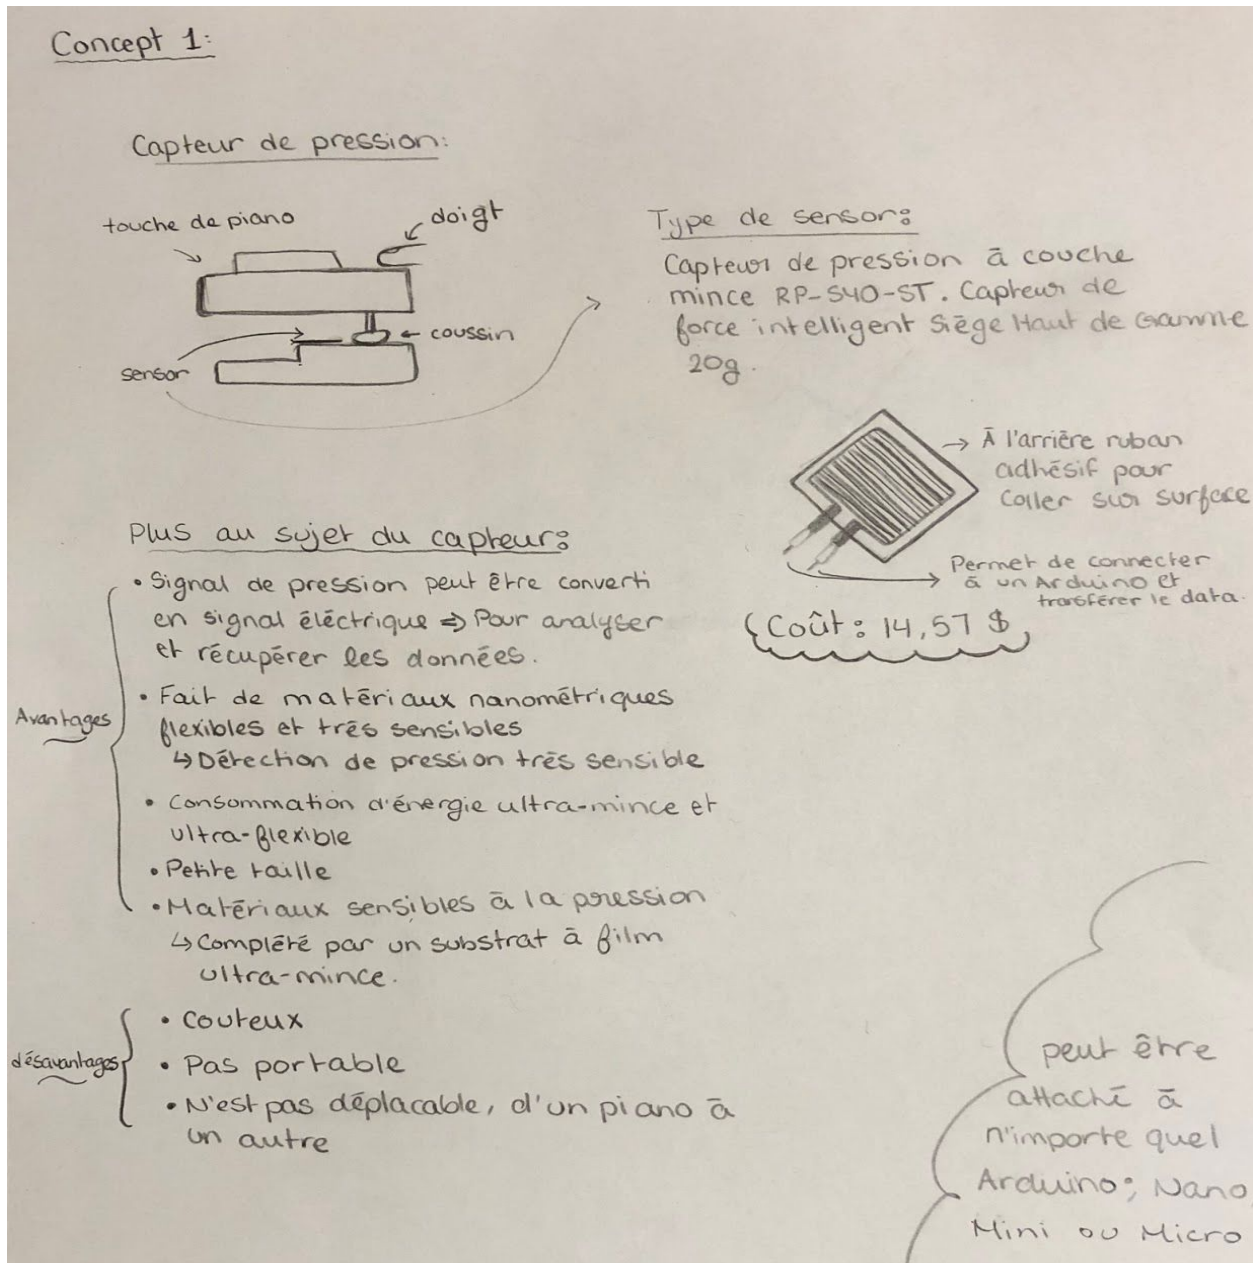 Concept 1:
Capteur de pression:
touche de piano
doigt
coussin
sensor
Type de sensor:
Capteur de pression à couche
mince RP-S40-ST. Capteur de
force intelligent Siège Haut de Gamme
20g.
→ À l'arrière ruban
adhésif pour
coller sur surface
Permet de connecter
à un Arduino et
transférer le data.
Coût: 14,57 $
Plus au sujet du capteur:
Avantages
• Signal de pression peut être converti
en signal éléctrique => Pour analyser
et récupérer les données.
• Fait de matériaux nanométriques
flexibles et très sensibles
↳ Détection de pression très sensible
• Consommation d'énergie ultra-mince et
ultra-flexible
• Petite taille
• Matériaux sensibles à la pression
↳ Complété par un substrat à film
ultra-mince.
désavantages
• Couteux
• Pas portable
• N'est pas déplacable, d'un piano à
un autre
peut être
attaché à
n'importe quel
Arduino; Nano,
Mini ou Micro